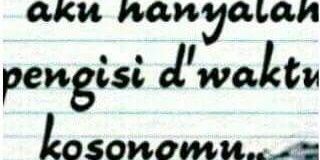 aku hanyalah
pengisi d'waktu
kosonomu..